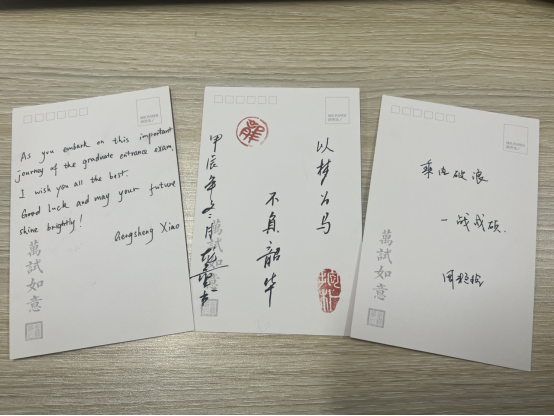 As you embark on this important
journey of the graduate entrance exam,
I wish you all the best.
Good luck and may your future
shine brightly!
Gengsheng Xiao
萬試如意
以梦为马
不负韶华
甲辰年冬月
萬試如意
乘风破浪
一战成硕.
萬試如意